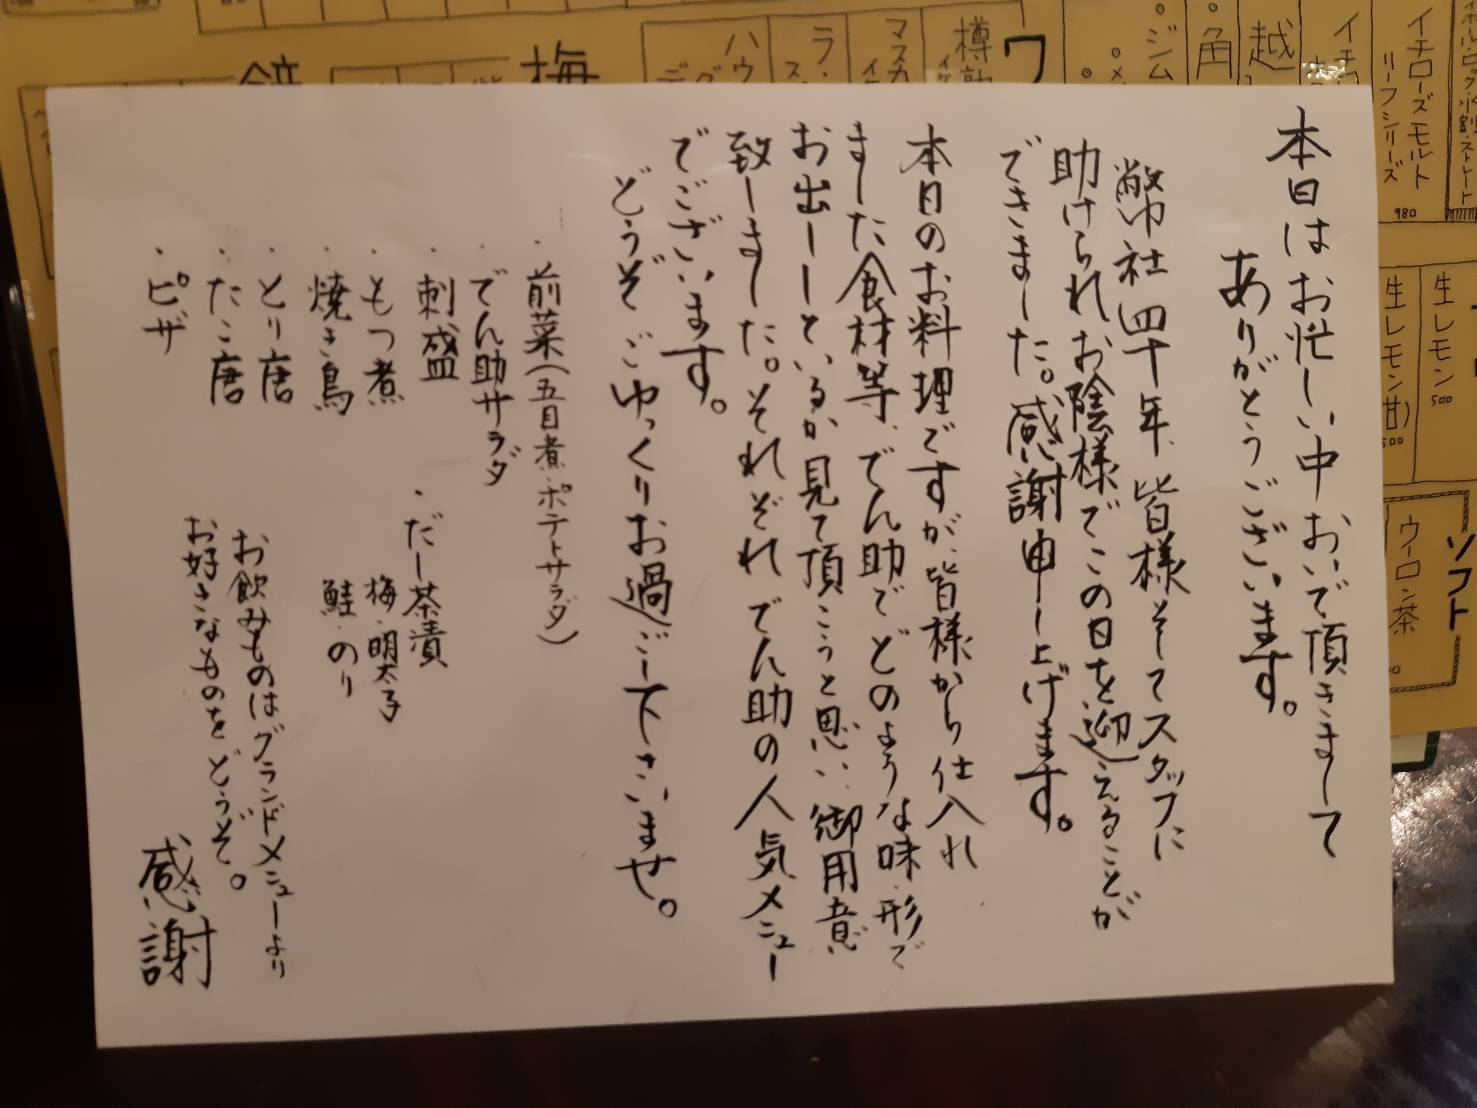 本日はお忙しい中おいで頂きまして
ありがとうございます。
弊社四十年、皆様そしてスタッフに
助けられお陰様でこの日を迎えることが
できました。感謝申し上げます。
本日のお料理ですが、皆様から仕入れ
ました食材等、でん助でどのような味・形で
お出ししているか見て頂こうと思い、御用意
致しました。それぞれでん助の人気メニュー
でございます。
どうぞごゆっくりお過ごし下さいませ。
・前菜(五目煮・ポテトサラダ)
・でん助サラダ
・刺盛
・もつ煮
・焼き鳥
・とり唐
・たこ唐
・ピザ
・だし茶漬
梅・明太子
鮭・のり
お飲みものはグランドメニューより
お好きなものをどうぞ。
感謝
ワ
樽
マスカ
ラ
ハウ
梅
ジム
角
越
イチローズモルト
リーフシリーズ
980
生レモン
500
生レモン(甘)
500
ソフト
ウーロン茶